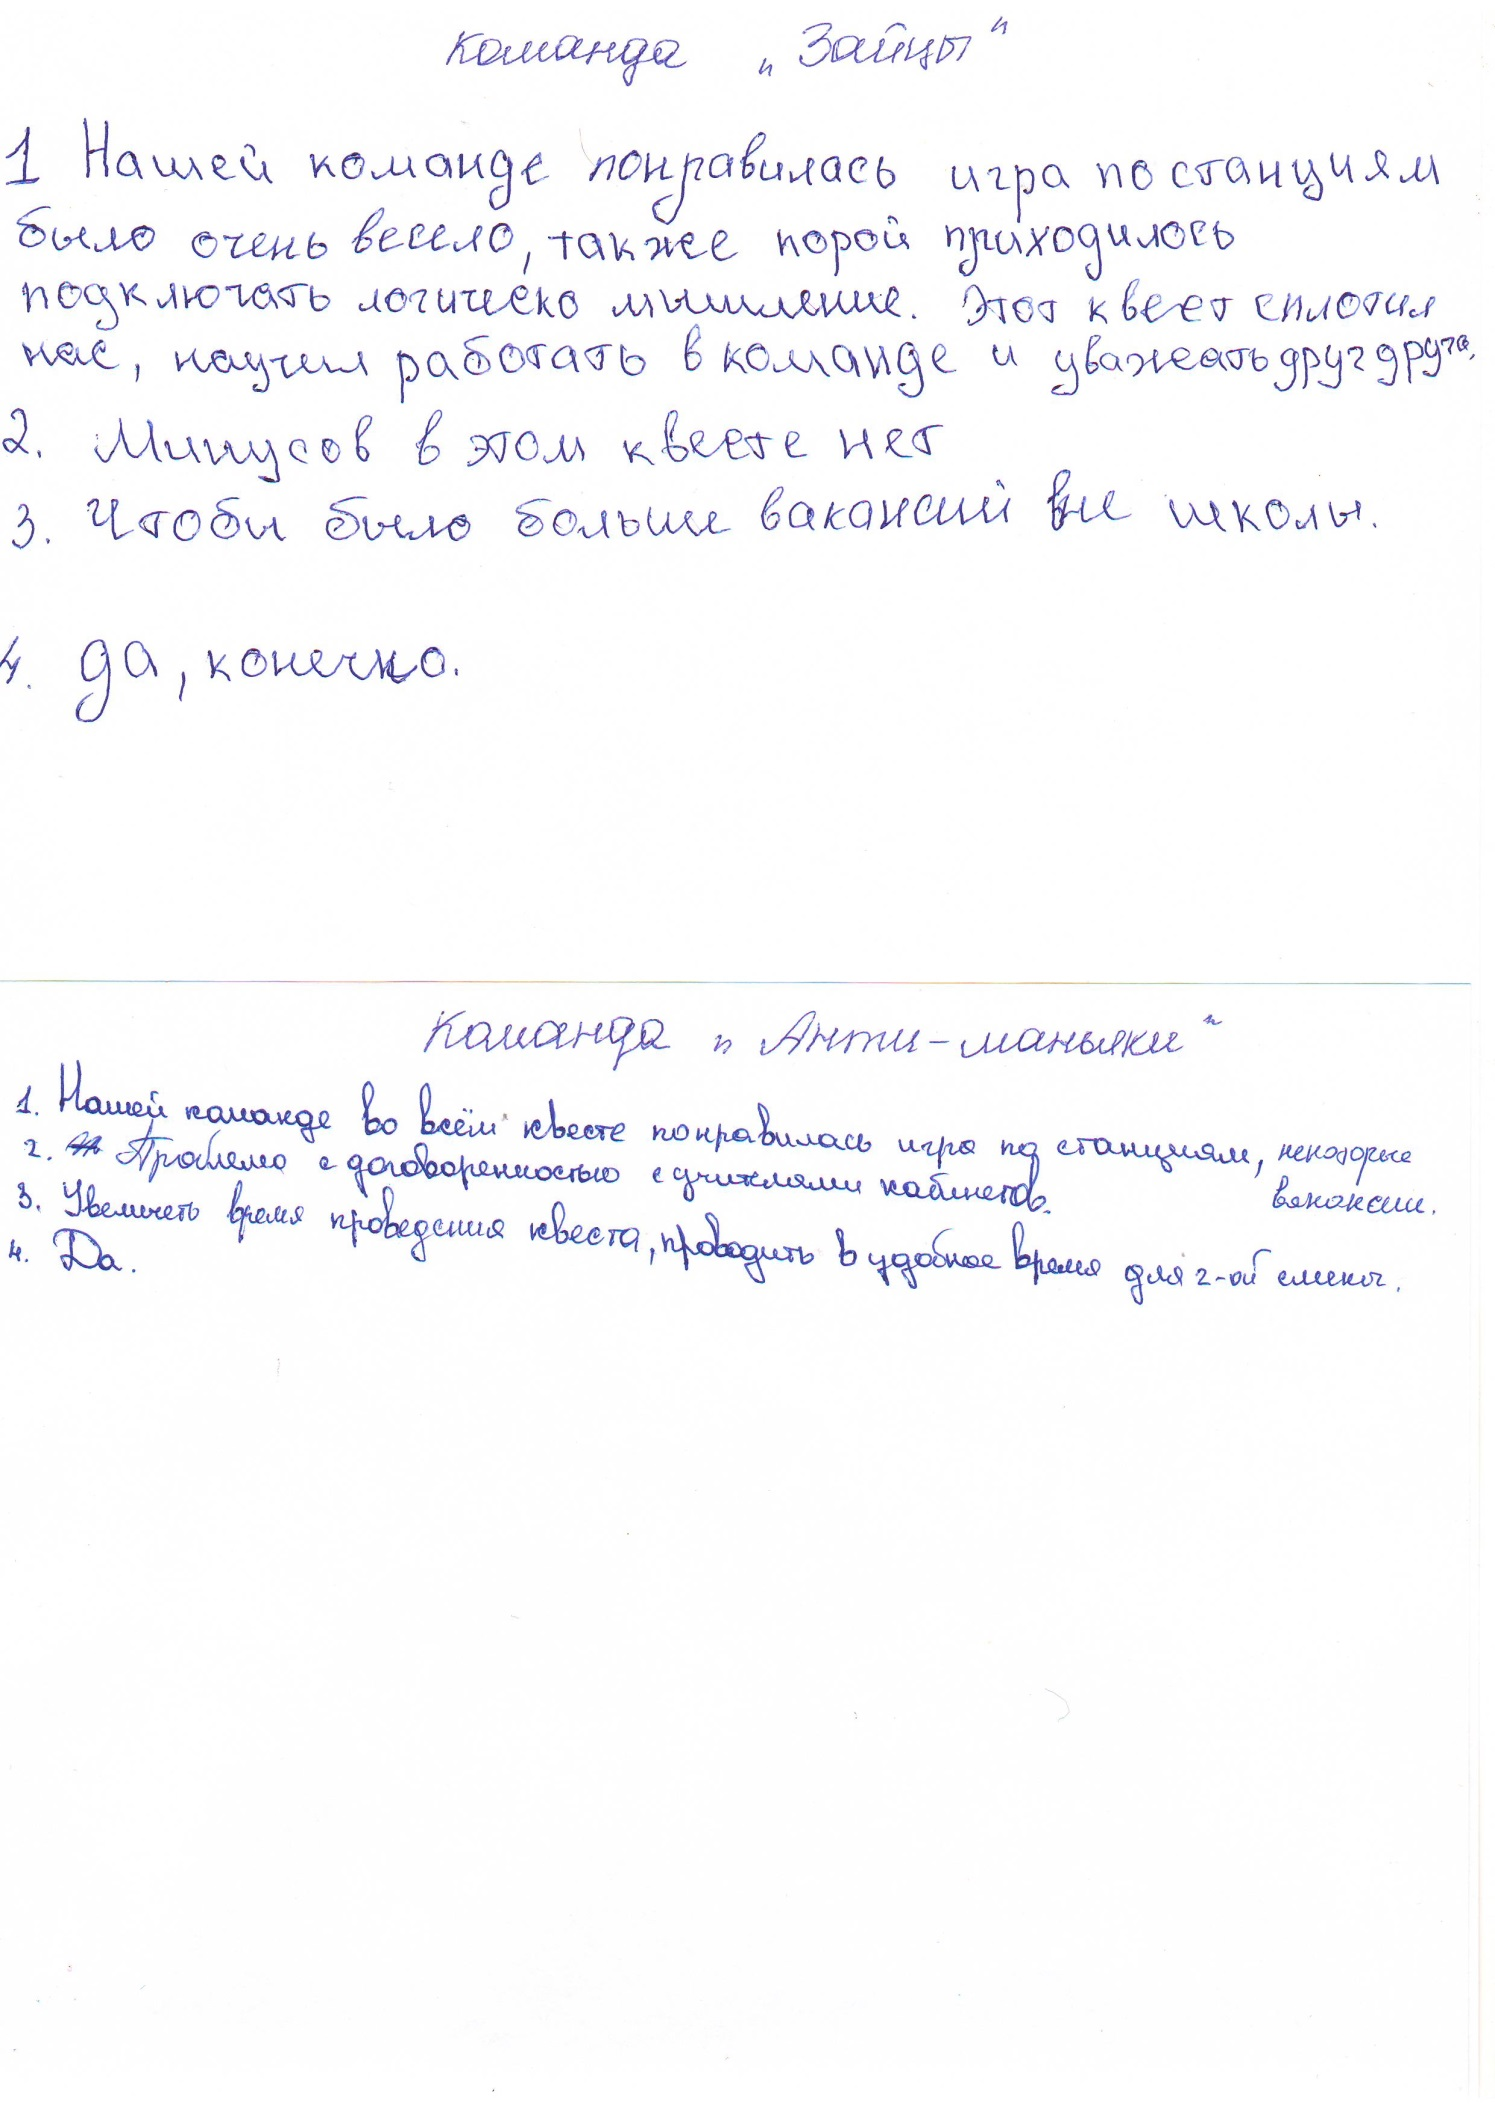 Команда „Зайцы"
1 Нашей команде понравилась игра по станциям
было очень весело, также порой приходилось
подключать логическо мышление. Этот квест сплотил
нас, научил работать в команде и уважать друг друга.
2. Минусов в этом квесте нет
3. Чтобы было больше вакансий вне школы.
4. да, конечно.
Команда „Анти-маньяки"
1. Нашей команде во всём квесте понравилась игра по станциям, некоторые
вакансии.
2. Проблема с договоренностью с учителями кабинетов.
3. Увеличеть время проведения квеста, проводить в удобное время для 2-ой смены.
4. Да.